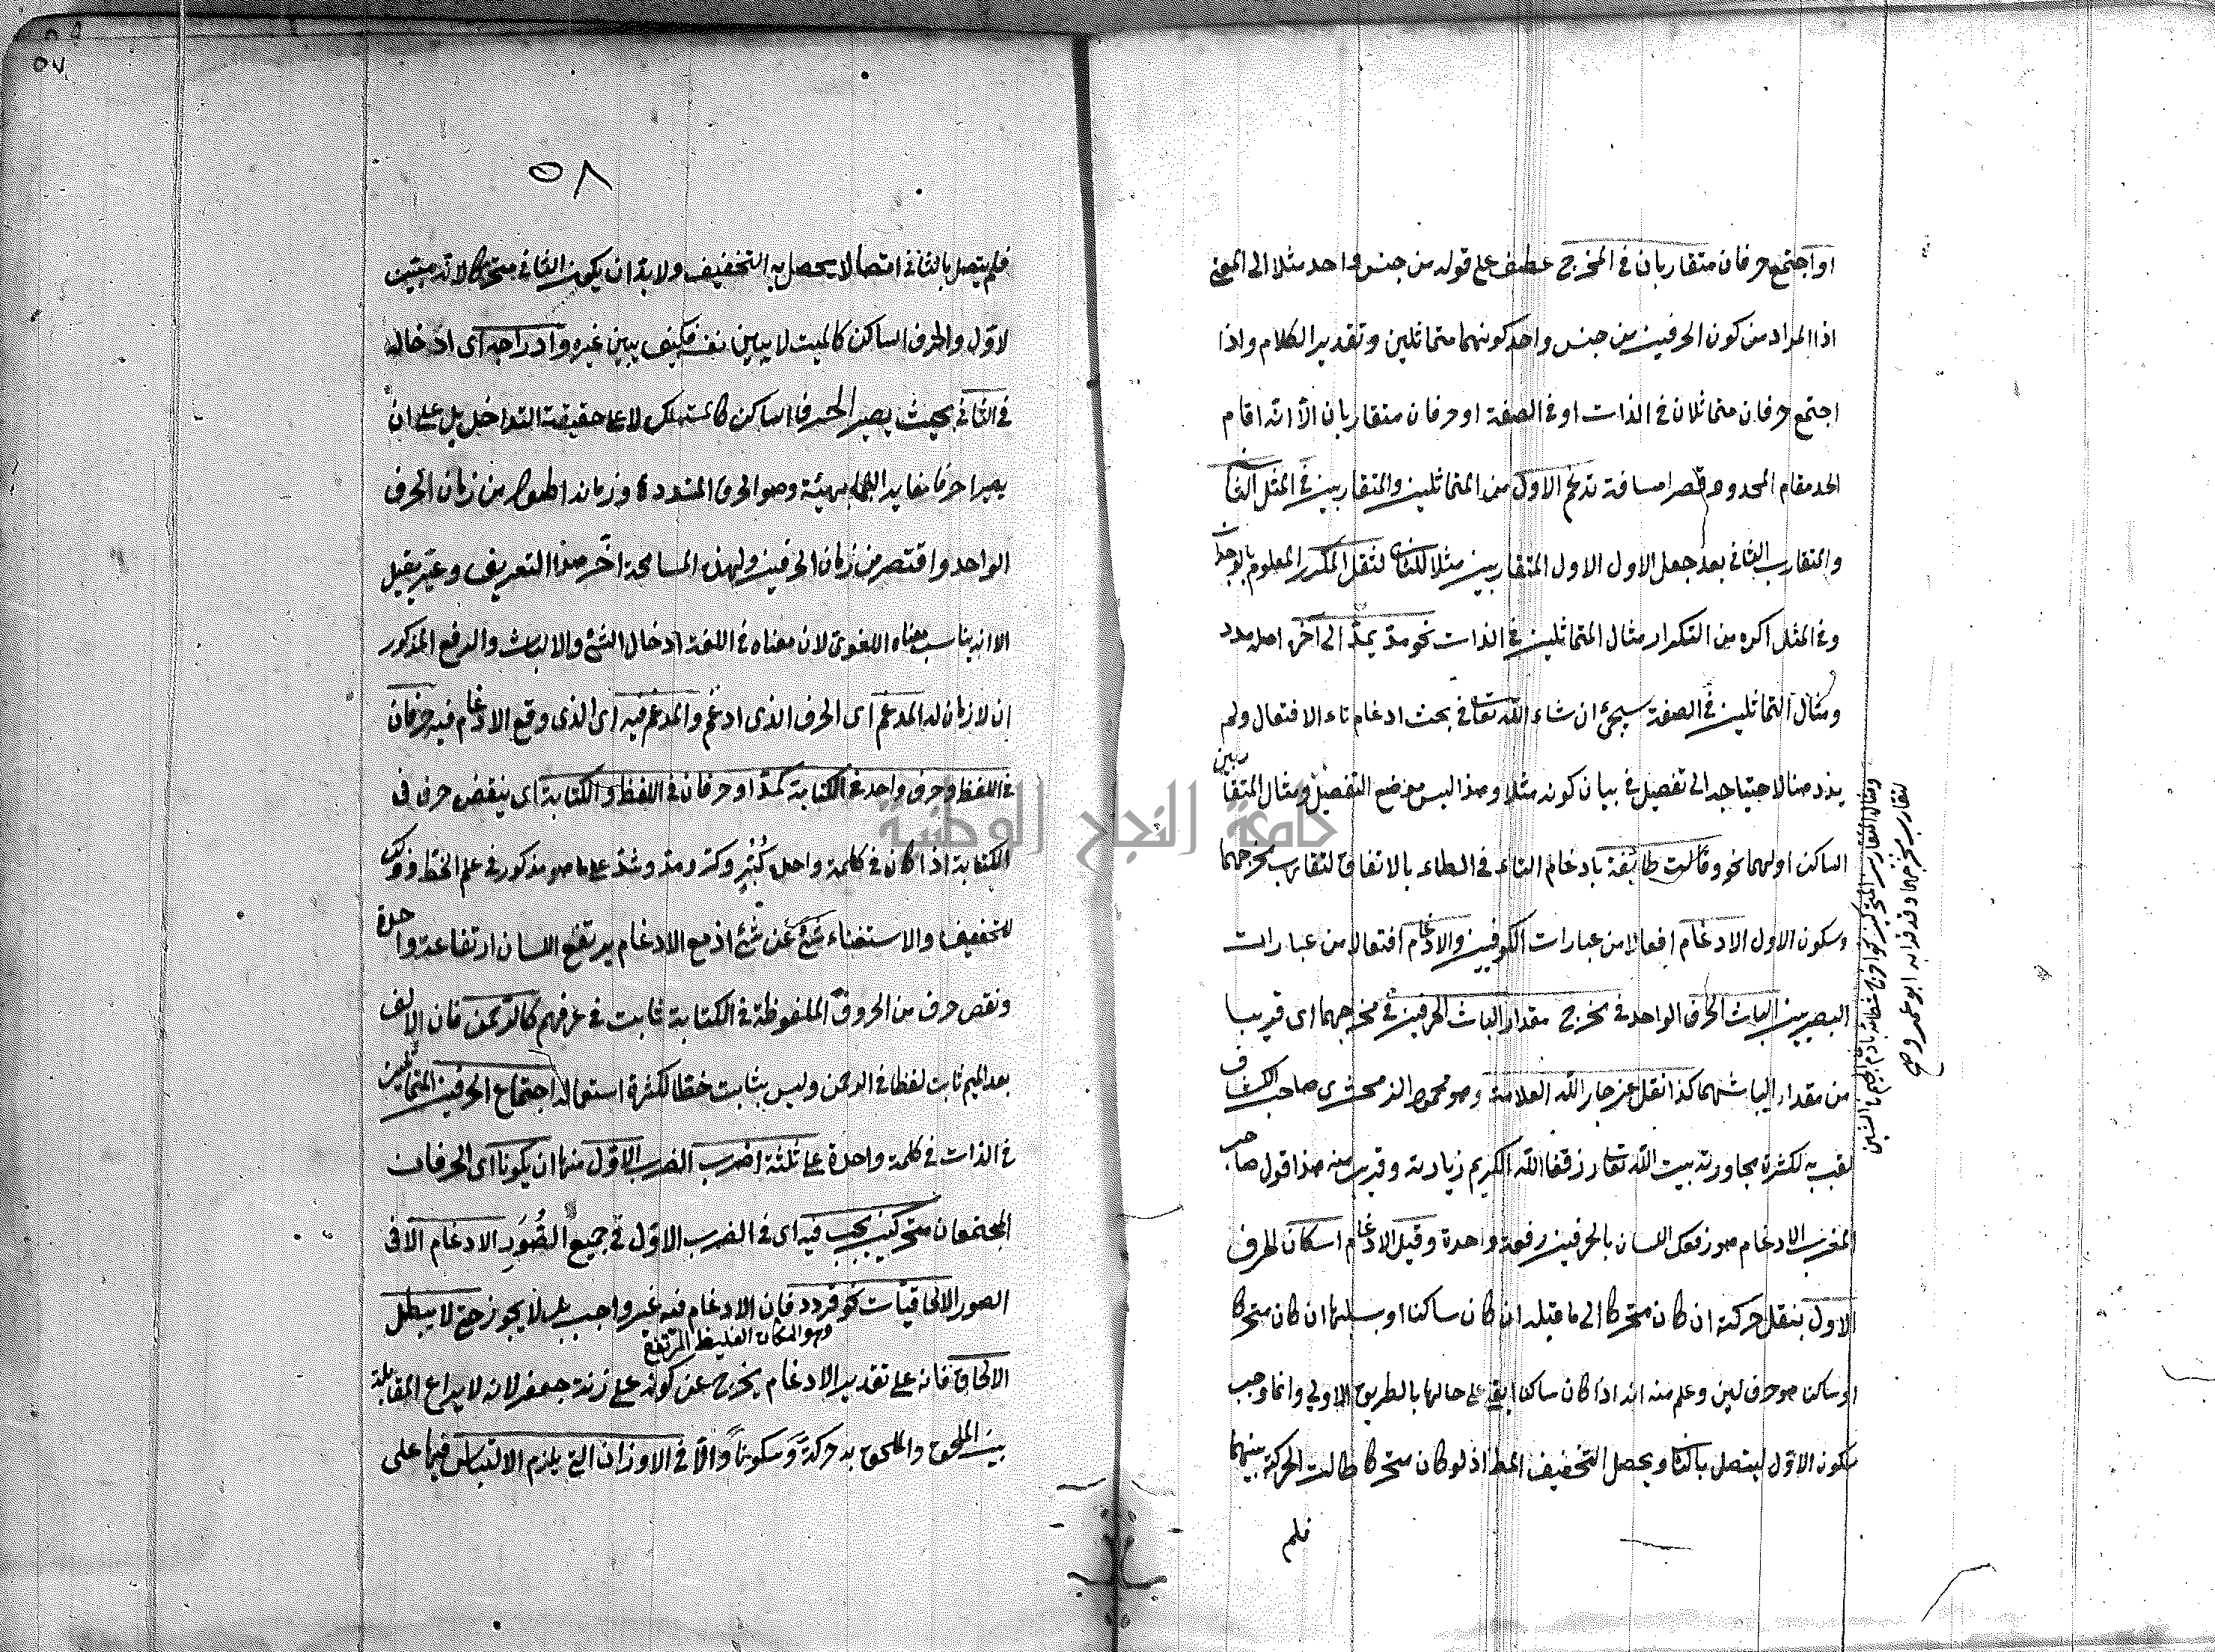 او اجتمع حرفان متقاربان فى المخرج عطف على قوله من جنس واحد مثلا الى المعنى
اذ المراد من كون الحرفين من جنس واحد كونهما متماثلين وتقدير الكلام واذا
اجتمع حرفان متماثلان فى الذات او فى الصفة او حرفان متقاربان الا انه اقام
الحد مقام المحدود قصرا مسافة تدغم الاول من المتماثلين والمتقاربين فى المثل الثانى
والمتقارب الثانى بعد جعل الاول الاول المتقاربين مثلا للثانى لثقل المكرر المعلوم بالوجدان
وفى المثل اكره من التكرار مثال المتماثلين فى الذات نحو مدّ يمدّ الى آخره اصله مدد
ومثال المتماثلين فى الصفة سيجئ ان شاء الله تعا فى بحث ادغام تاء الافتعال ولم
هنا لاحتياجه الى تفصيل فى بيان كونه مثلا وهذا ليس موضع التفصيل ومثال المتقاربين
الساكن اولهما نحو وقالت طائفة بادغام التاء فى الطاء بالاتفاق لتقارب مخرجهما
وسكون الاول الادغام افعالا من عبارات الكوفيين والادّغام افتعالا من عبارات
البصريين الباث الحرف الواحد فى مخرجه مقدار الباث الحرفين فى مخرجهما اى قريبا
من مقدار الباثهما كذا نقل عن جار الله العلامة وهو محمود الزمحشرى صاحب الكشاف
لقب به لكثرة مجاورته بيت الله تعا رزقنا الله الكريم زيارته وقريب منه هذا قول صاحب
المغرب الادغام هو رفعك اللسان بالحرفين رفعة واحدة وقيل الادغام اسكان الحرف
الاول بنقل حركته ان كان متحركا الى ما قبله ان كان ساكنا او بسلبها ان كان متحركا
او ساكنا هو حرف لين وعلم منه انه اذا كان ساكنا ابقى على حالها بالطريق الاولى وانما وجب
سكون الاول ليتصل بالثانى ويحصل التخفيف المط اذ لو كان متحركا طالت الحركة بينهما
فلم
ومثال المتقاربين المتحركين نحو اخرج شطأه بادغام الجيم فى الشين
لتقارب مخرجهما وقد قرا به ابو عمرو
٥٧
٥٨
فلم يتصل بالثانى اتصالا يحصل به التخفيف ولا بد ان يكون الثانى متحركا لانه مبين
لاول والحرف الساكن كالميت لا يبين نفسه فكيف يبين غيره وادراجه اى ادخاله
فى الثانى بحيث يصير الحرف الساكن كالمستهلك لا على حقيقة التداخل بل على ان
يصيرا حرفا مغايرا لهما بهيئة وهو الحرف المشدد وزمانه اطول من زمان الحرف
الواحد واقتصر من زمان الحرفين ولهذه المسامحة اخّر هذا التعريف وعبّر بقيل
الا انه يناسب معناه اللغوى لان معناه فى اللغة ادخال الشئ والالباث والرفع المذكور
ان لازمان له المدغم اى الحرف الذى ادغم والمدغم فيه اى الذى وقع الادغام فيه حرفان
فى اللفظ وحرف واحد فى الكتابة كمدّ او حرفان فى اللفظ والكتابة اى ينقص حرف فى
الكتابة اذا كان فى كلمة واحدة وكرّ ومدّ وشدّ على ما هو مذكور فى علم الخط وذلك
للتخفيف والاستغناء شئ عن شئ اذ مع الادغام يرتفع اللسان ارتفاعة واحدة
ونقص حرف من الحروف الملفوظة فى الكتابة ثابت فى عرفهم كالرحمن فان الالف
بعد الميم ثابت لفظا فى الرحمن وليس بثابت خطا لكثرة استعماله اجتماع الحرفين المتماثلين
فى الذات فى كلمة واحدة على ثلثة اضرب الضرب الاول منها ان يكونا اى الحرفان
المجتمعان متحركين يجب فيه اى فى الضرب الاول فى جميع الصُوَر الادغام الا فى
الصور الالحاقيات نحو قردد فان الادغام فيه غير واجب بل لا يجوز حتى لا يبطل
وهو المكان الغليظ المرتفع
الالحاق فانه على تقدير الادغام يخرج عن كونه على زنة جعفر لانه لا يراع المقابلة
بين الملحق والملحق به حركةً وسكوناً والا فى الاوزان التى يلزم الالتباس فيها على
جامعة النجاح الوطنية